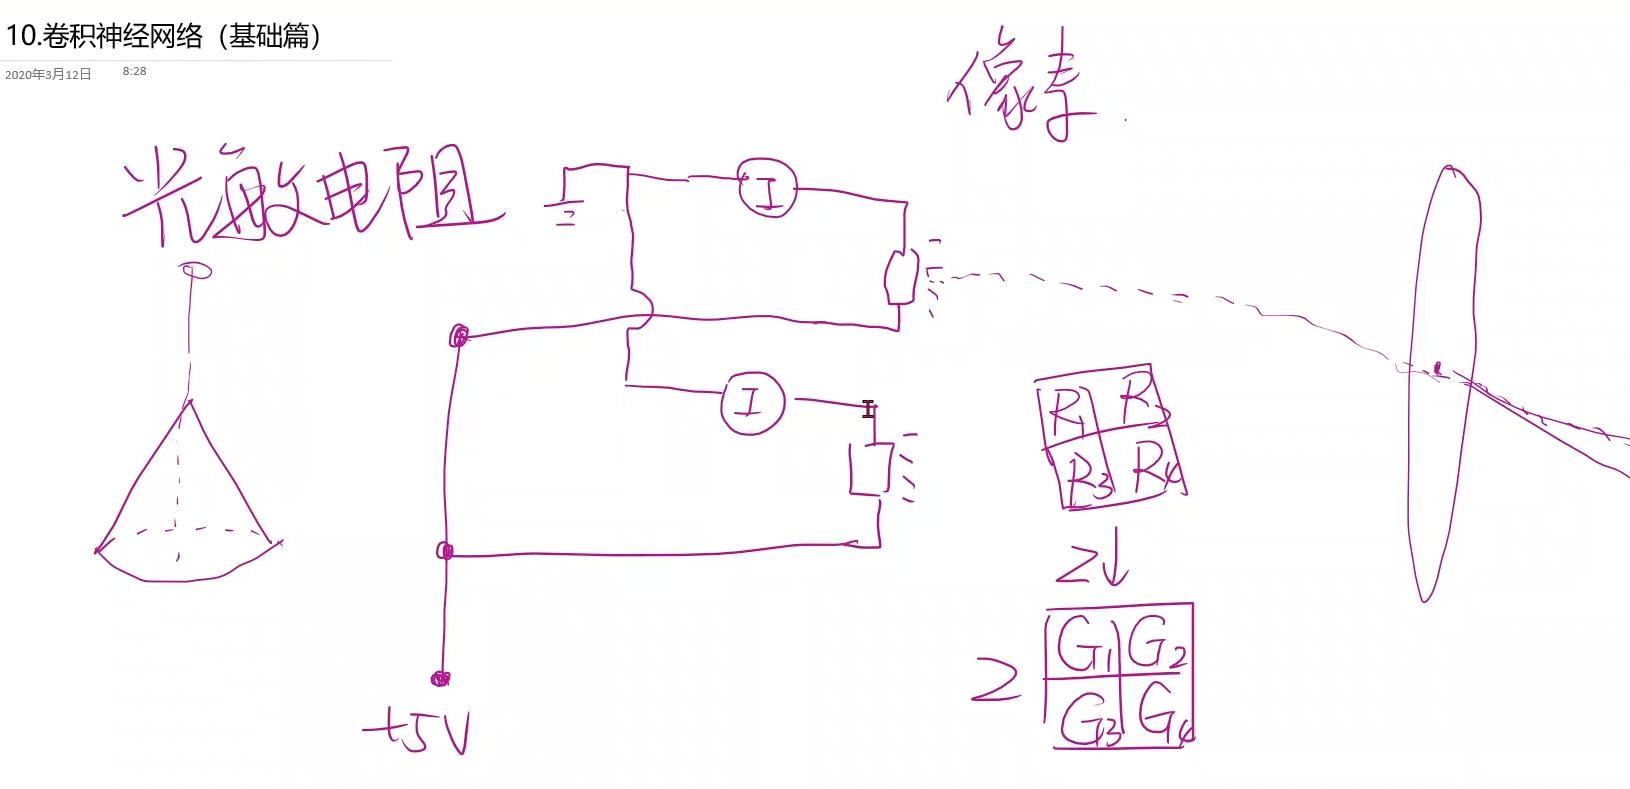 10.卷积神经网络（基础篇）
2020年3月12日 8:28
像素
光敏电阻
I
I
R1 R2
R3 R4
2
2
G1 G2
G3 G4
+5V